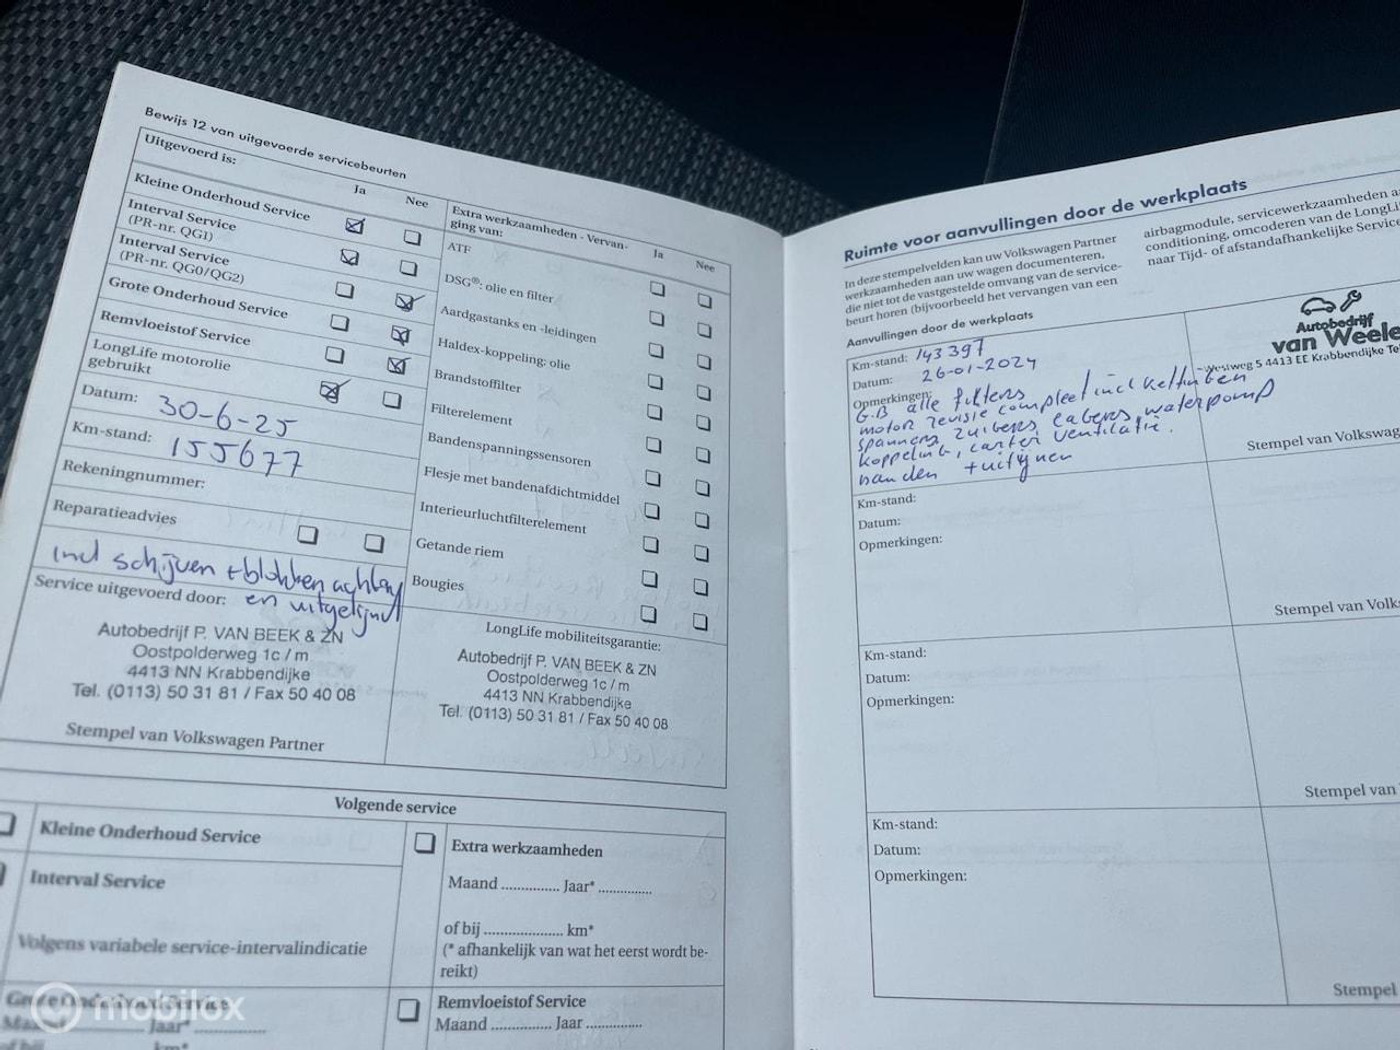 Bewijs 12 van uitgevoerde servicebeurten
Uitgevoerd is:
Ja
Nee
Kleine Onderhoud Service
Interval Service
(PR-nr. QG1)
Interval Service
(PR-nr. QG0/QG2)
Grote Onderhoud Service
Remvloeistof Service
LongLife motorolie
gebruikt
Datum: 30-6-25
Km-stand: 155677
Rekeningnummer:
Reparatieadvies
incl schijven + blokken achter
Service uitgevoerd door: en uitgelijnd
Autobedrijf P. VAN BEEK & ZN
Oostpolderweg 1c / m
4413 NN Krabbendijke
Tel. (0113) 50 31 81 / Fax 50 40 08
Stempel van Volkswagen Partner
Extra werkzaamheden - Vervan-
ging van:
Ja
Nee
ATF
DSG®: olie en filter
Aardgastanks en -leidingen
Haldex-koppeling: olie
Brandstoffilter
Filterelement
Bandenspanningssensoren
Flesje met bandenafdichtmiddel
Interieurluchtfilterelement
Getande riem
Bougies
LongLife mobiliteitsgarantie:
Autobedrijf P. VAN BEEK & ZN
Oostpolderweg 1c / m
4413 NN Krabbendijke
Tel. (0113) 50 31 81 / Fax 50 40 08
Volgende service
Kleine Onderhoud Service
Interval Service
Volgens variabele service-intervalindicatie
Grote Onderhoud Service
Jaar*
km*
Extra werkzaamheden
Maand ............... Jaar* ..............
of bij .................... km*
(* afhankelijk van wat het eerst wordt be-
reikt)
Remvloeistof Service
Maand ............... Jaar ..............
mobilox
Ruimte voor aanvullingen door de werkplaats
In deze stempelvelden kan uw Volkswagen Partner
werkzaamheden aan uw wagen documenteren,
die niet tot de vastgestelde omvang van de service-
beurt horen (bijvoorbeeld het vervangen van een
airbagmodule, servicewerkzaamheden a
conditioning, omcoderen van de LongLif
naar Tijd- of afstandafhankelijke Service
Aanvullingen door de werkplaats
Km-stand: 143397
Datum: 26-01-2024
Opmerkingen:
G.B alle filters
motor revisie compleet incl kettingen
spanners, zuigers, lagers, waterpomp
koppeling, carter ventilatie.
banden + uitlijnen
Autobedrijf
van Weele
Westweg 5 4413 EE Krabbendijke Te
Stempel van Volkswag
Km-stand:
Datum:
Opmerkingen:
Stempel van Volks
Km-stand:
Datum:
Opmerkingen:
Stempel van
Km-stand:
Datum:
Opmerkingen:
Stempel